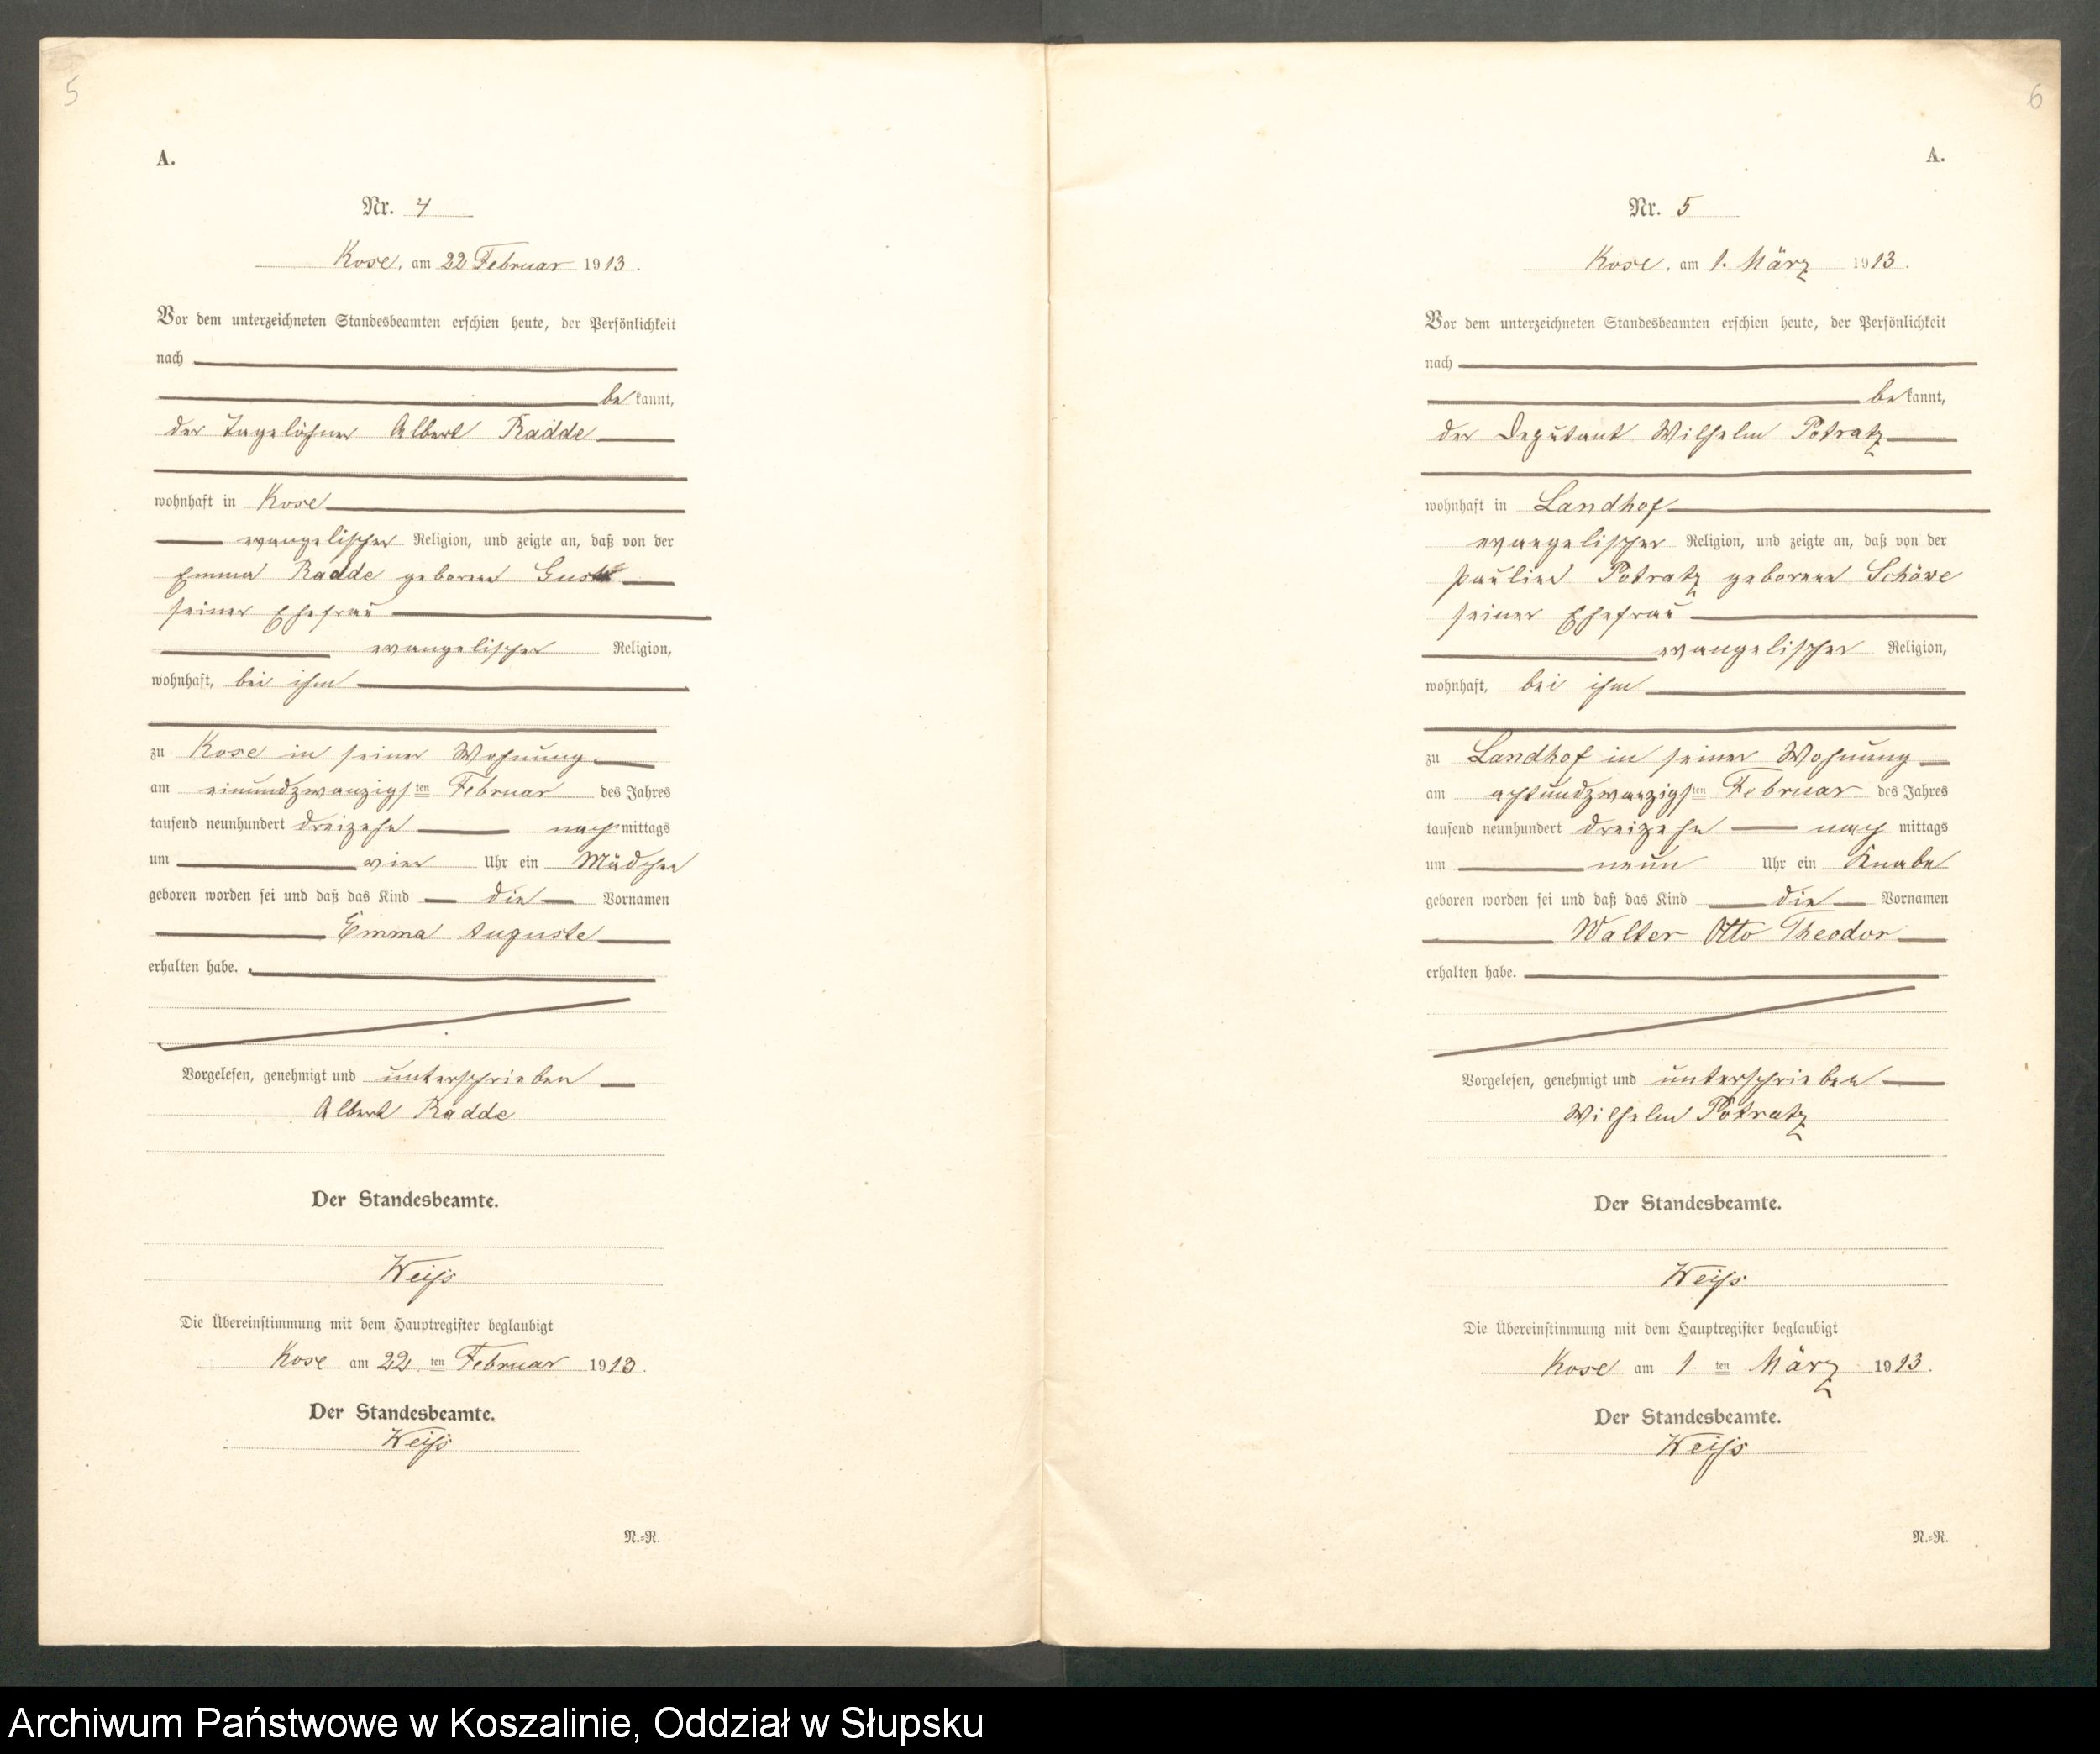 5
A.
Nr. 4
Kose, am 22 Februar 1913.
Vor dem unterzeichneten Standesbeamten erschien heute, der Persönlichkeit
nach
be kannt,
der Tagelöhner Albert Radde
wohnhaft in Kose
evangelischer Religion, und zeigte an, daß von der
Emma Radde geborene
seiner Ehefrau
evangelischer Religion,
wohnhaft, bei ihm
zu Kose in seiner Wohnung
am einundzwanzigsten Februar des Jahres
tausend neunhundert dreizehn nachmittags
um vier Uhr ein Mädchen
geboren worden sei und daß das Kind die Vornamen
Emma Auguste
erhalten habe.
Vorgelesen, genehmigt und unterschrieben
Albert Radde
Der Standesbeamte.
Weiß
Die Übereinstimmung mit dem Hauptregister beglaubigt
Kose am 22. ten Februar 1913.
Der Standesbeamte.
Weiß
N.=R.
6
A.
Nr. 5
Kose, am 1. März 1913.
Vor dem unterzeichneten Standesbeamten erschien heute, der Persönlichkeit
nach
be kannt,
der Deputant Wilhelm Potratz
wohnhaft in Landhof
evangelischer Religion, und zeigte an, daß von der
Pauline Potratz geborene Schöwe
seiner Ehefrau
evangelischer Religion,
wohnhaft, bei ihm
zu Landhof in seiner Wohnung
am achtundzwanzigsten Februar des Jahres
tausend neunhundert dreizehn nach mittags
um neun Uhr ein Knabe
geboren worden sei und daß das Kind die Vornamen
Walter Otto Theodor
erhalten habe.
Vorgelesen, genehmigt und unterschrieben
Wilhelm Potratz
Der Standesbeamte.
Weiß
Die Übereinstimmung mit dem Hauptregister beglaubigt
Kose am 1. ten März 1913.
Der Standesbeamte.
Weiß
N.=R.
Archiwum Państwowe w Koszalinie, Oddział w Słupsku